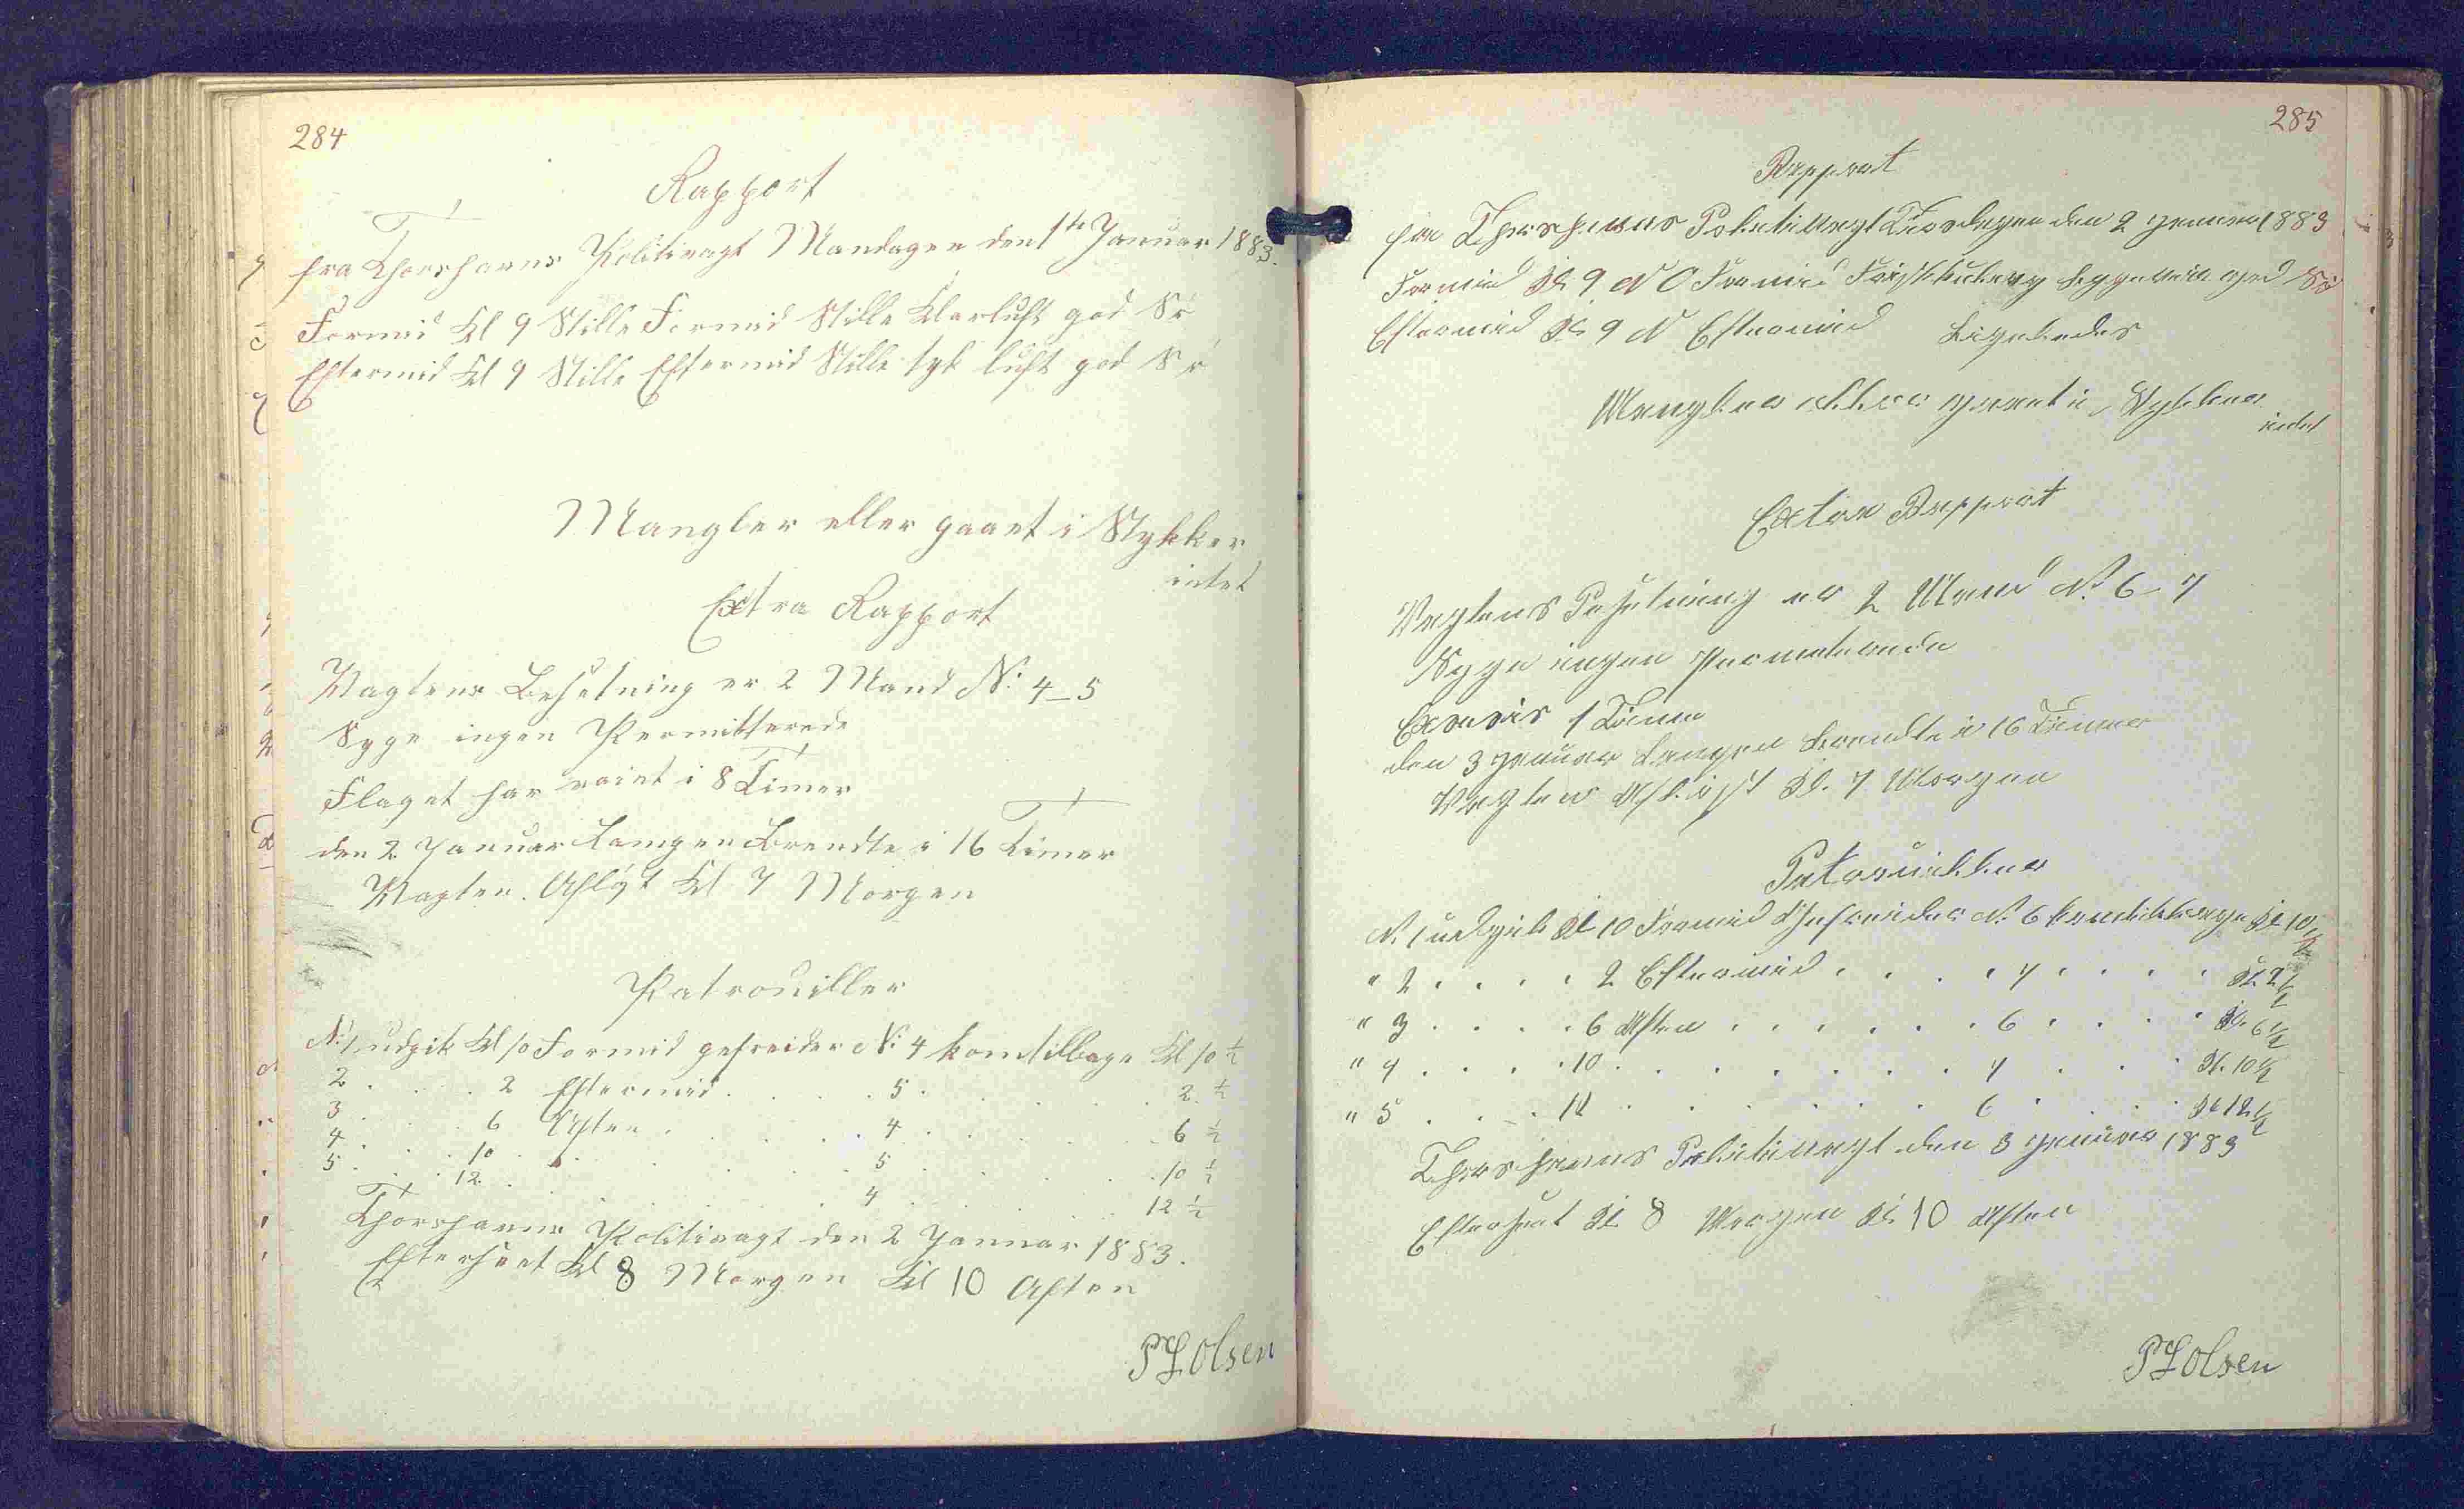 284
Rapport
fra Thorshavns Politivagt Mandagen den 1ste Januar 1883.
Formid Kl 9 Stille Formid Stille Klarluft god Sö
Eftermid Kl 9 Stille Eftermid Stille tyk luft god Sö
Mangler eller gaaet i Stykker
intet
Extra Rapport
Vagtens Besetning er 2 Mand No: 4_5
Syge ingen Permitterede
Flaget har vaiet i 8 Timer
den 2 Januar Lampen Brendte i 16 Timer
Vagten Aflöst Kl 7 Morgen
Patrouiller
No: 1 udgik Kl 10 Formid gefreider No: 4 kom tilbage Kl 10 ½
2 . . . . 2 Eftermid . . . . 5 . . . . 2 ½
3 . . . . 6 Aften . . . . 4 . . . . 6 ½
4 . . . . 10 . . . . 5 . . . . 10 ½
5 . . . . 12 . . . . 4 . . . . 12 ½
Thorshavns Politivagt den 2 Januar 1883.
Efterseet Kl 8 Morgen Kl 10 Aften
Olsen
285
Rapport
fra Thorshavns Politivagt Tirsdagen den 2 Januar 1883
Formid Kl 9 N O Formid god Sö
Eftermid Kl 9 N Eftermid Ligeledes
Mangler eller gaaet i Stykker
intet
Extra Rapport
Vagtens Besetning er 2 Mand No. 6_7
Syge ingen Permiterede
Exersis 1 Time
den 3 Januar Lampen brendte i 16 Timer
Vagten Aflöst Kl. 7 Morgen
Patrouiller
No. 1 udgik Kl 10 Formid Gefreider No. 6 kom tilbage Kl 10 ½
" 2 . . . . 2 Eftermid . . . . 7 . . . . Kl. 2 ½
" 3 . . . . 6 Aften . . . . 6 . . . . Kl. 6 ½
" 4 . . . . 10 . . . . 7 . . . . Kl. 10 ½
" 5 . . . . 12 . . . . 6 . . . . Kl 12 ½
Thorshavns Politivagt den 3 Januar 1883
Efterseet Kl 8 Morgen Kl 10 Aften
Olsen